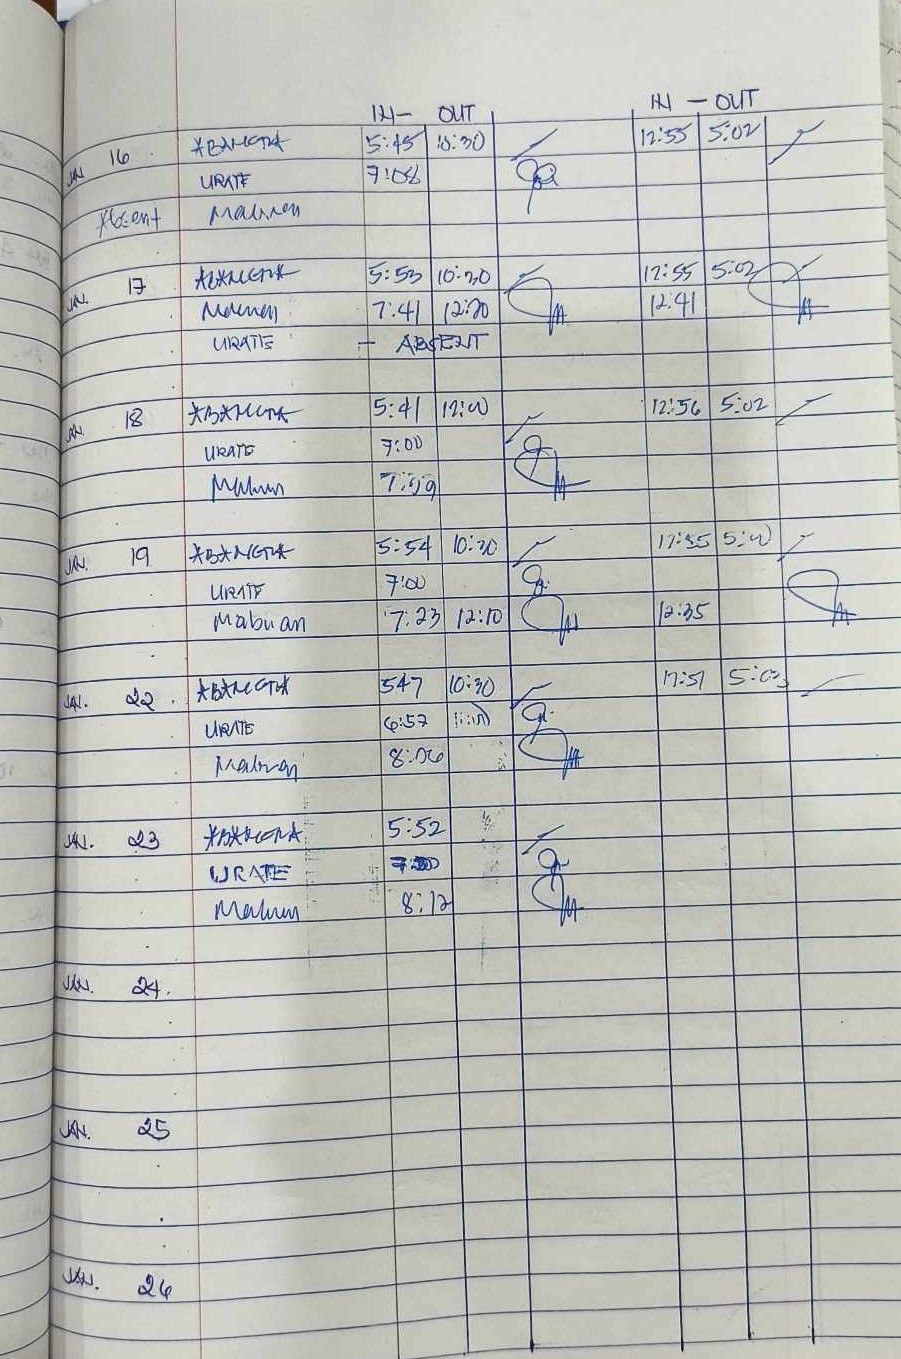 IN - OUT IN - OUT
JAN 16 ABANGTA 5:45 10:30 12:55 5:02
URATE 7:08
Absent Mabuan
JAN. 17 ABANGTA 5:53 10:30 12:55 5:02
Mabuan 7:41 12:20 12:41
URATE - ABSENT
JAN. 18 ABANGTA 5:41 12:00 12:56 5:02
URATE 7:00
Mabuan
JAN. 19 ABANGTA 5:54 10:30 12:55
URATE 7:00
Mabuan 7:23 12:10 12:35
JAN. 22 ABANGTA 547 10:30 5:03
URATE 6:57
Mabuan 8:06
JAN. 23 ABANGTA 5:52
URATE
Mabuan 8:12
JAN. 24.
JAN. 25
JAN. 26